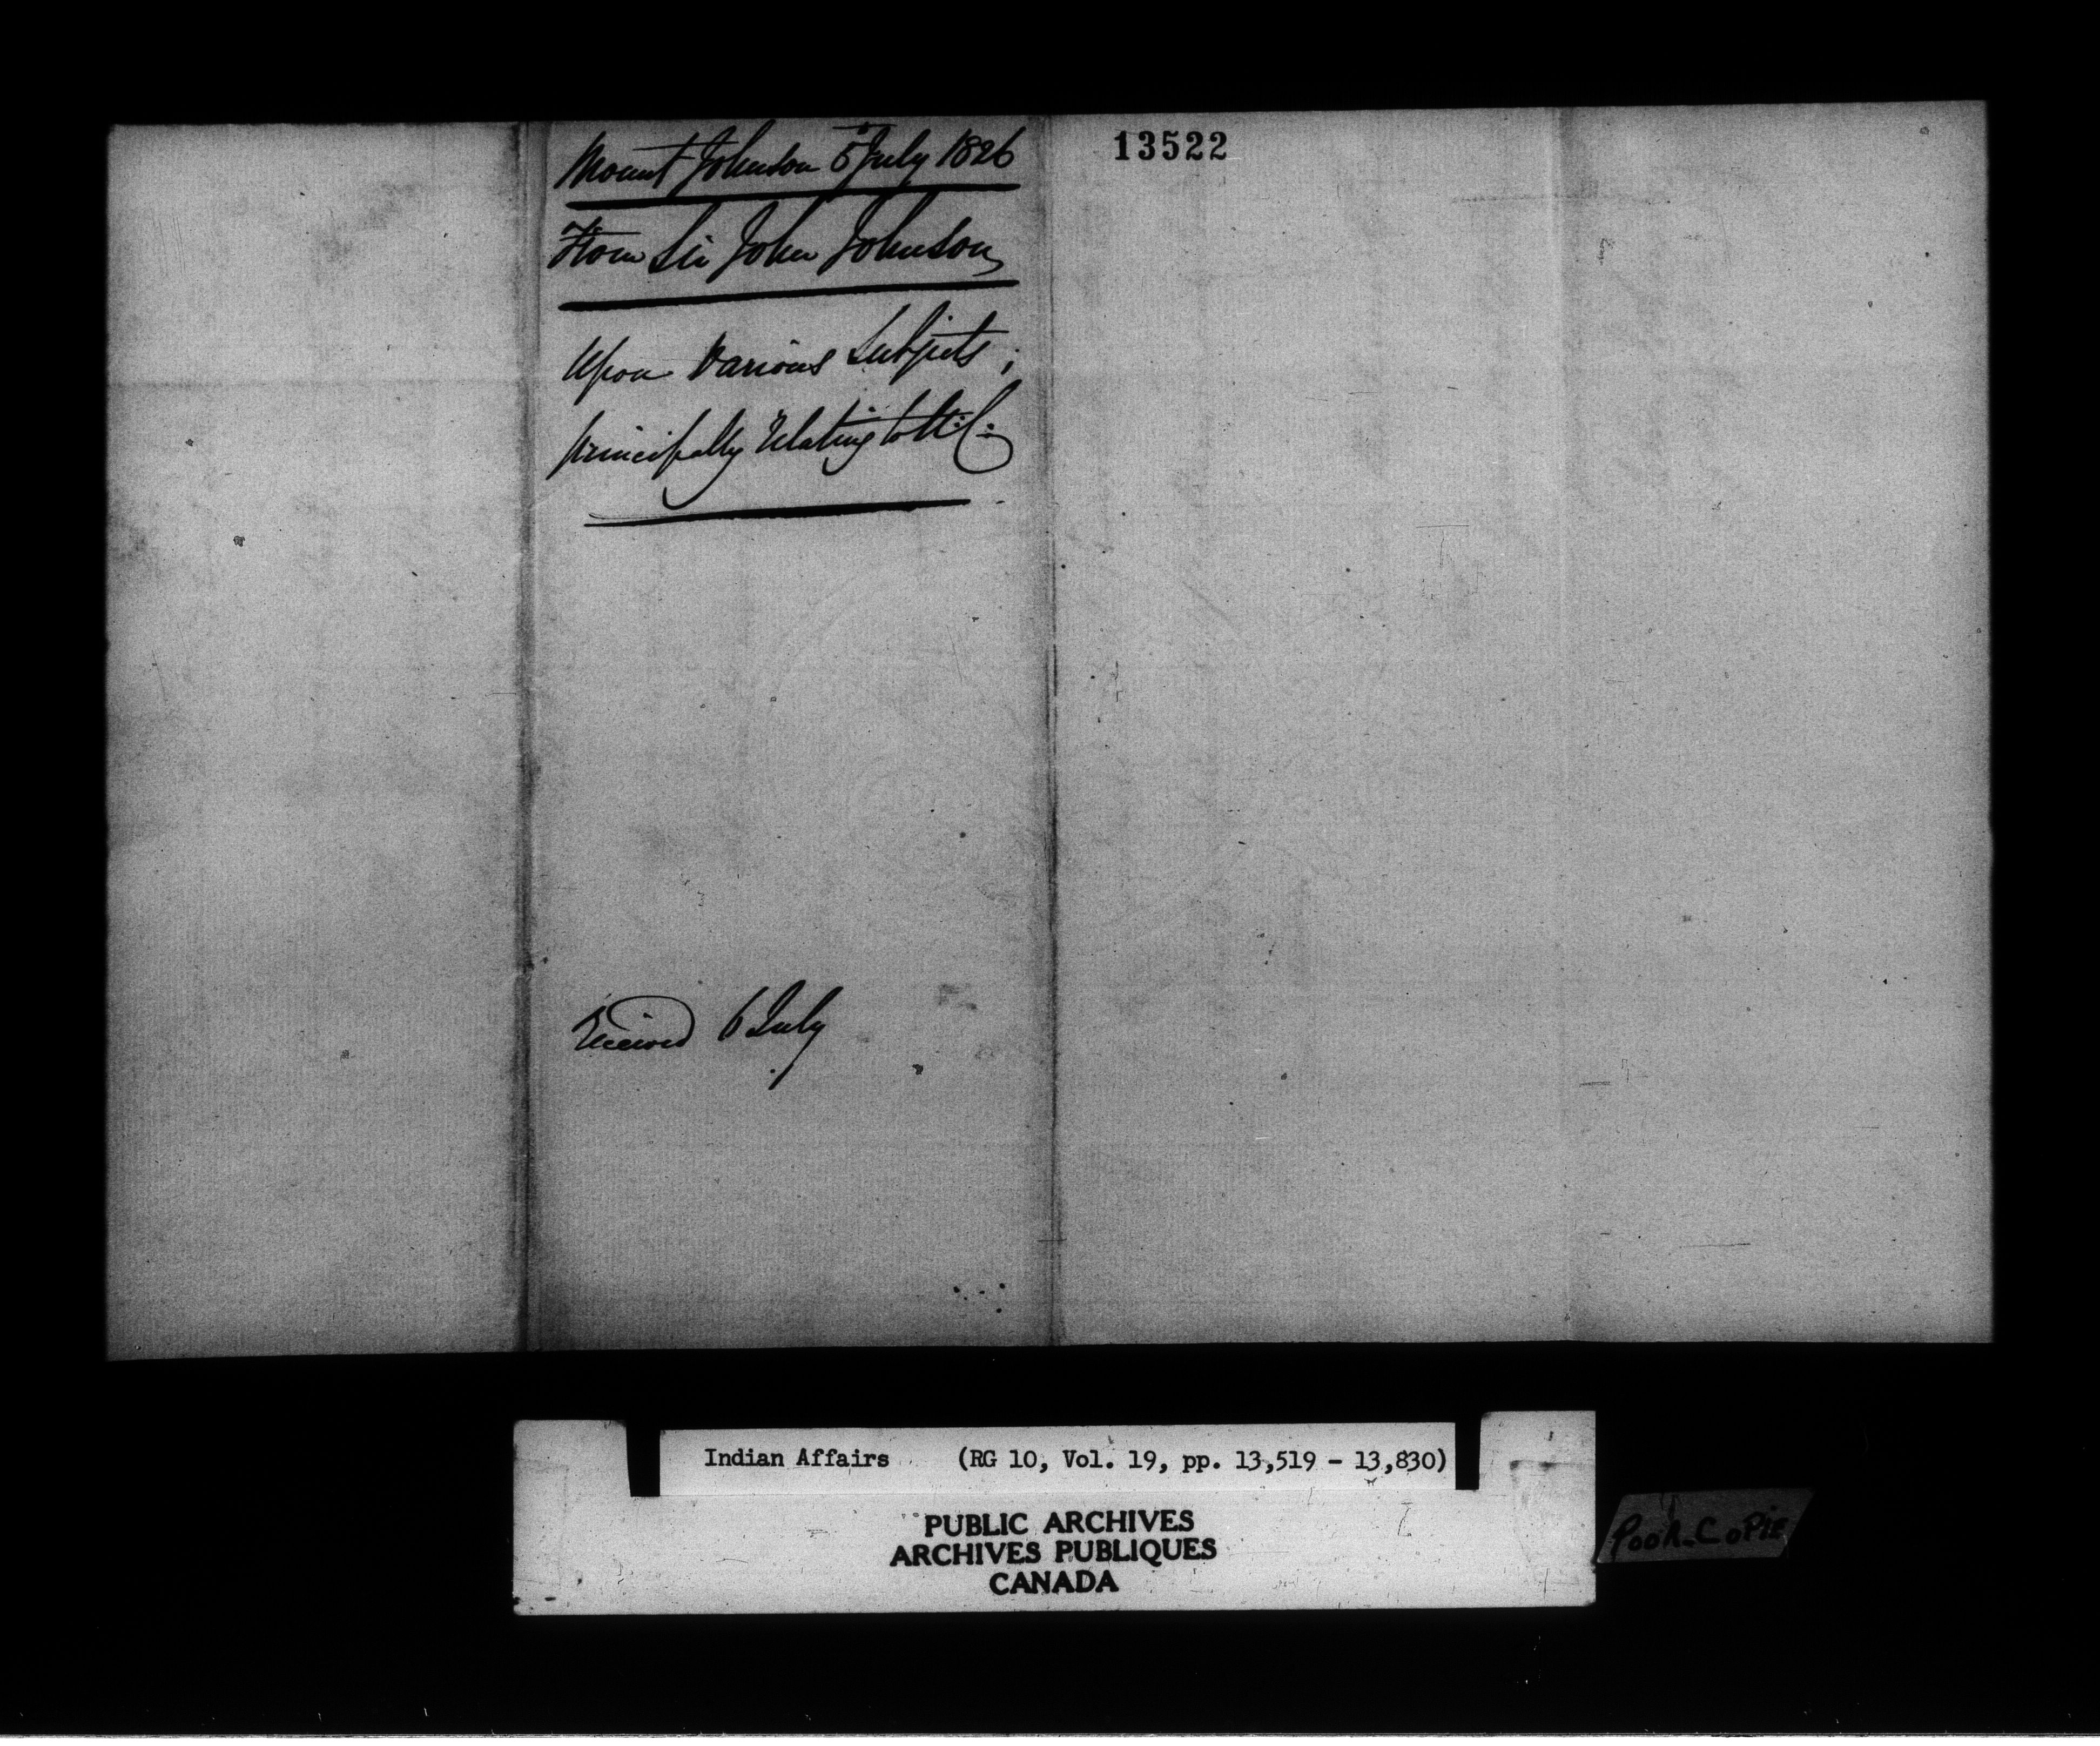 Mount Johnson 5th July 1826
13522
From Sir John Johnson
Upon Various Subjects;
principally relating to U: C:
Received 6 July
Indian Affairs (RG 10, Vol. 19, pp. 13,519 - 13,830)
PUBLIC ARCHIVES
ARCHIVES PUBLIQUES
CANADA
POOR COPIE